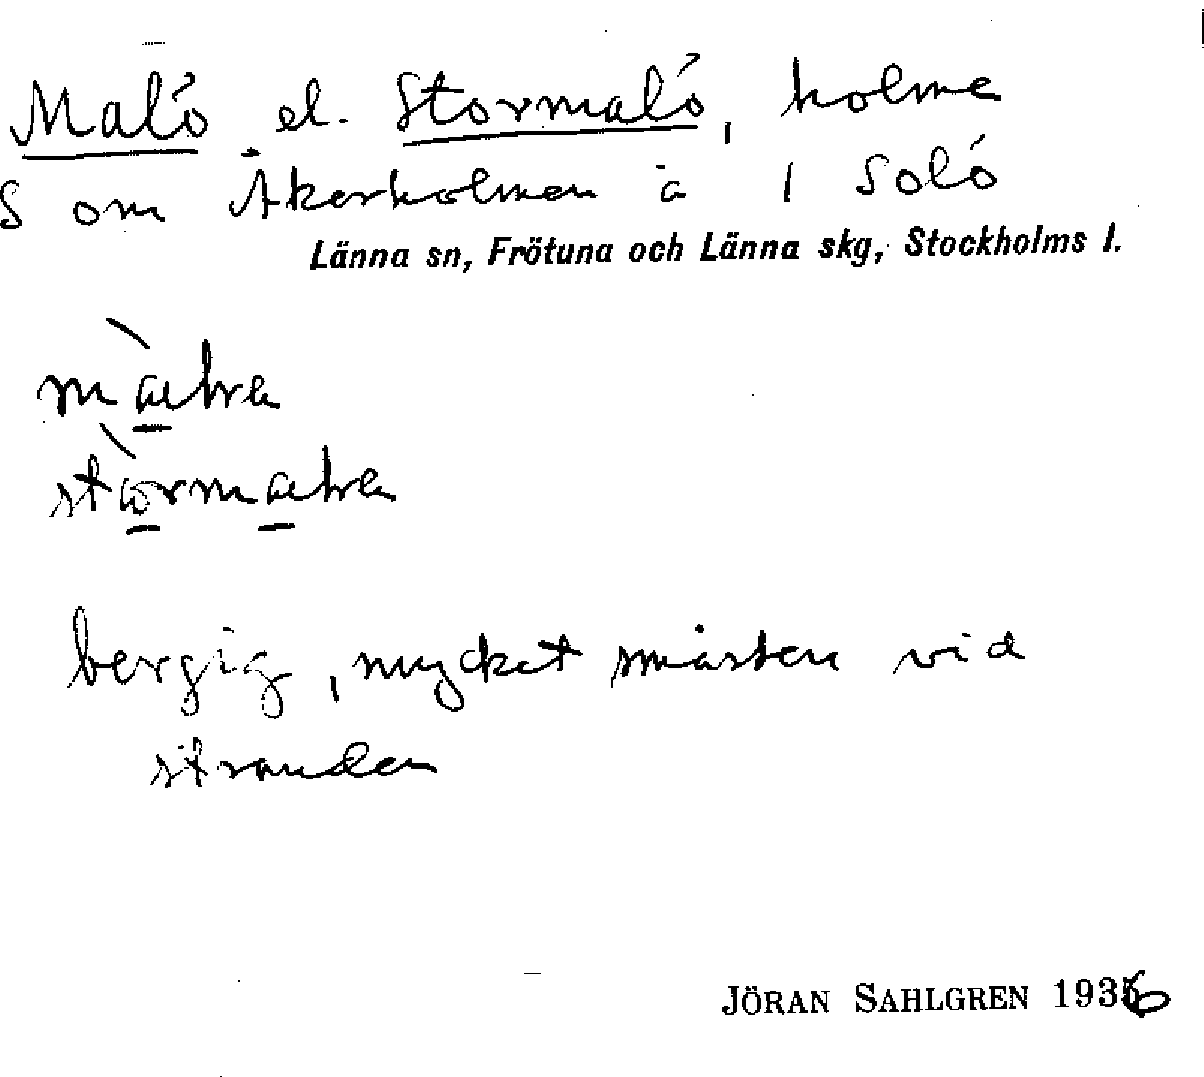 Malö el. Stormalö, holme
S om Åkerholmen å 1 Solö
Länna sn, Frötuna och Länna skg, Stockholms l.
bergig, mycket småsten vid
stranden
JÖRAN SAHLGREN 1936